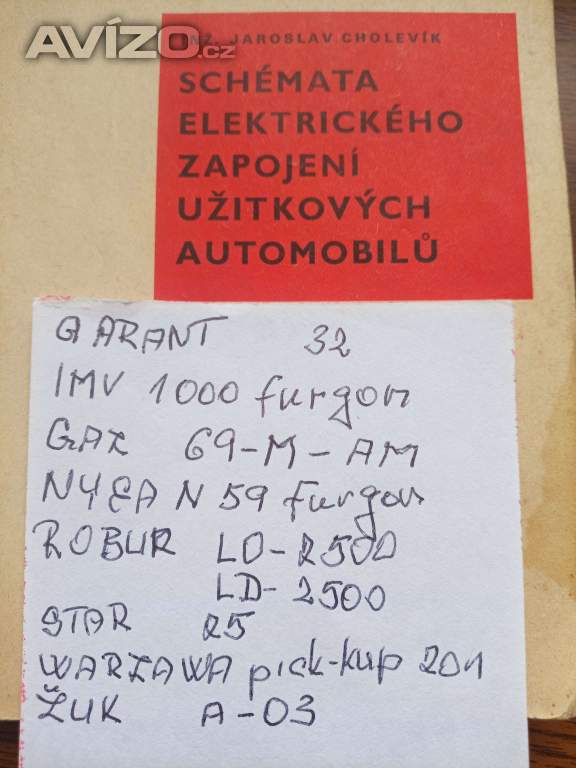 AVÍZO.cz
INŽ. JAROSLAV CHOLEVÍK
SCHÉMATA
ELEKTRICKÉHO
ZAPOJENÍ
UŽITKOVÝCH
AUTOMOBILŮ
GARANT 32
IMV 1000 furgon
GAZ 69-M-AM
NYSA N 59 furgon
ROBUR LO-2500
LD-2500
STAR 25
WARZAWA pick-kup 201
ŽUK A-03